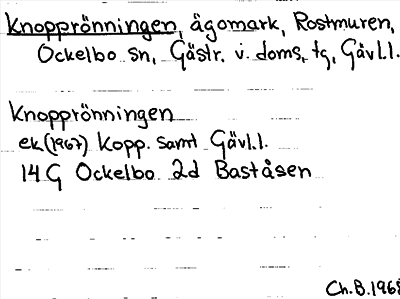 Knopprönningen, ägomark, Rostmuren,
Ockelbo sn, Gästr. v. doms. tg, Gävl.l.
Knopprönningen
ek(1967) Kopp. samt Gävl.l.
14 G Ockelbo 2d Baståsen
Ch.B.1968